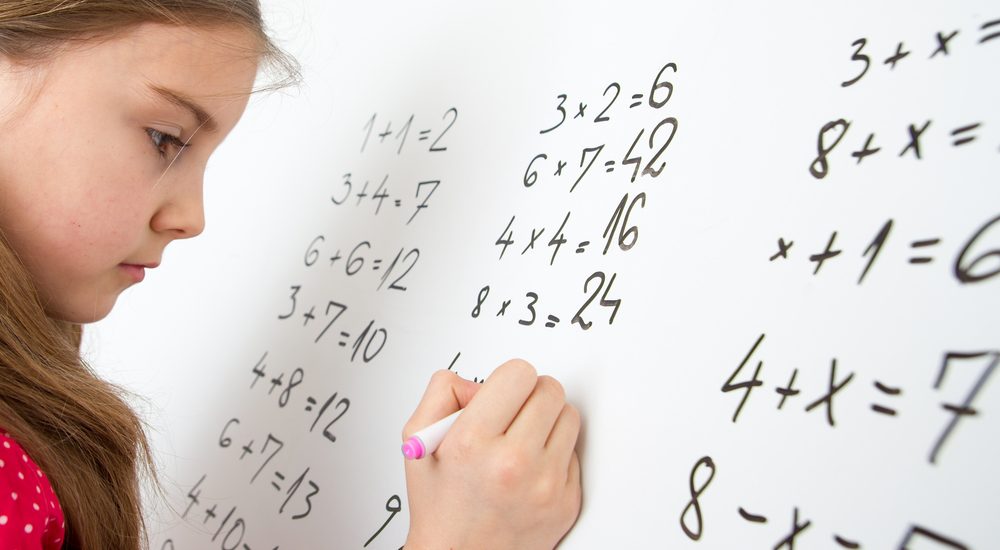 1+1=2
3+4=7
6+6=12
3+7=10
4+8=12
6+7=13
4+10
3×2=6
6×7=42
4×4=16
8×3=24
9
3+x=
8+x=
x+1=6
4+x=7
8-x=